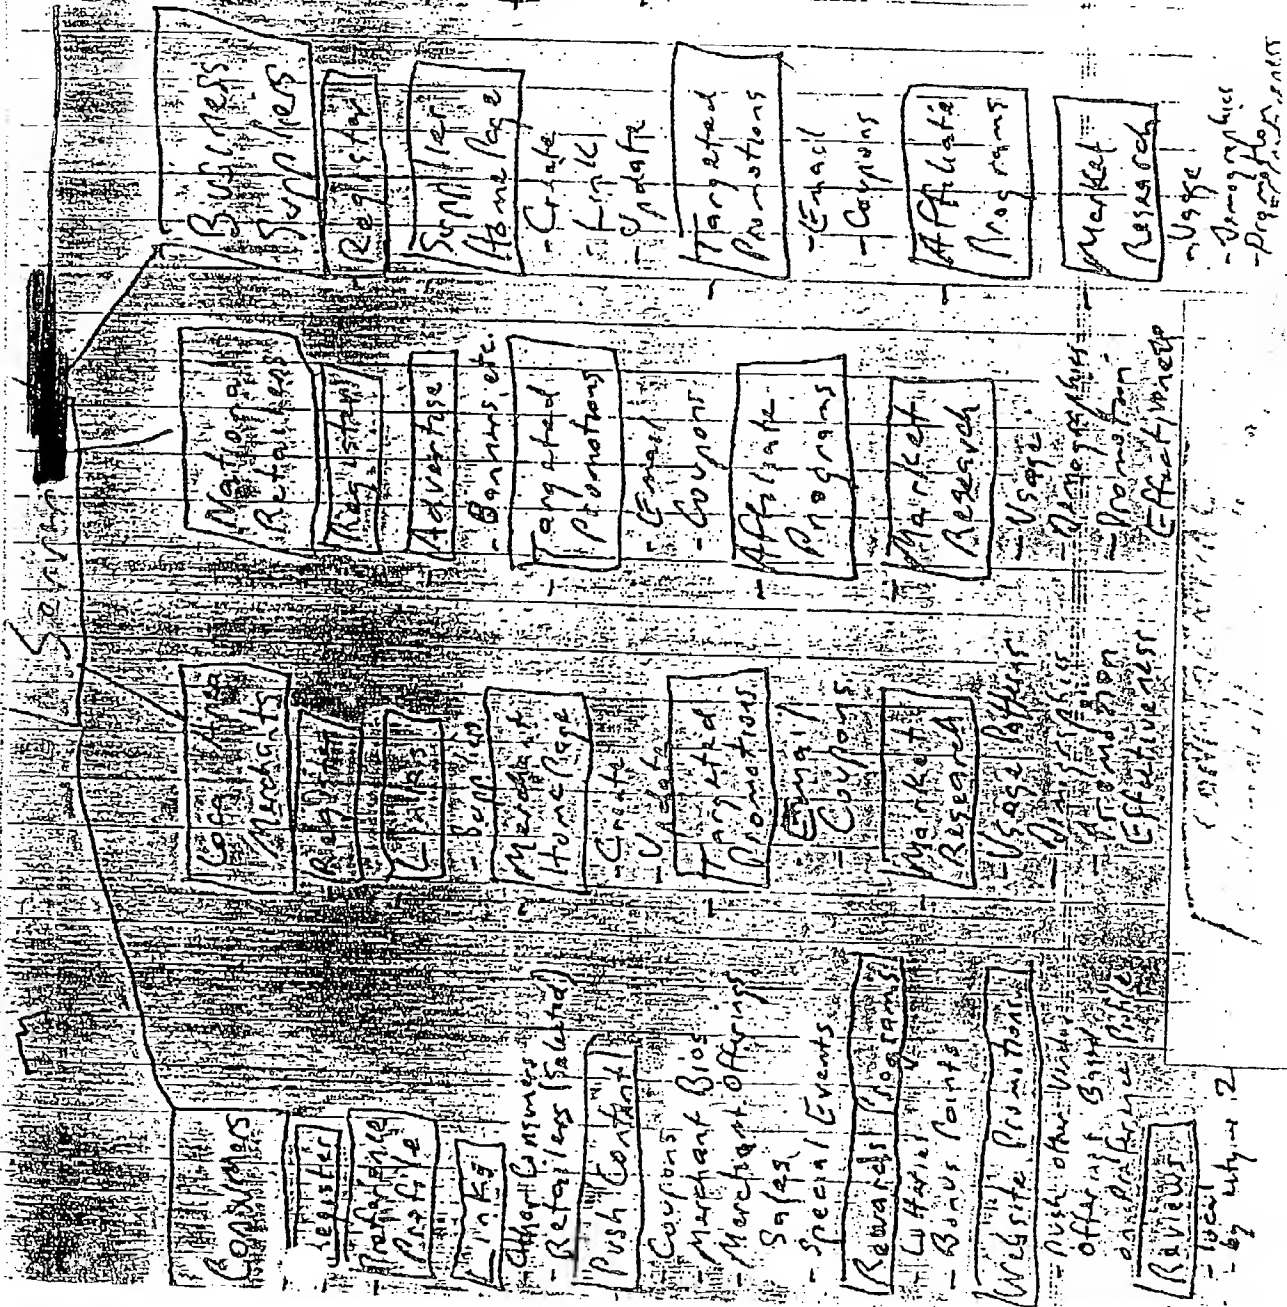 Server
Consumers
Register
Preference
Profile
Links
- Other Consumers
- Retailers (Selected)
Push Content
- Coupons
- Merchant Bios
- Merchant Offerings
Sales
- Special Events
Rewards Programs
- Lotteries
- Bonus Points
Website Promotions
- Push other Vendor
Offerings Based
on Preference Profile
Reviews
- local
- by
Local Area
Merchants
Register
Links
- Suppliers
Merchant
Home Page
- Create
- Update
Targeted
Promotions
- Email
- Coupons
Market
Research
- Usage Patterns
- Demographics
- Promotion
Effectiveness
National
Retailers
Register
Advertise
- Banners, etc.
Targeted
Promotions
- Email
- Coupons
- Affiliate
Programs
Market
Research
- Usage
- Demographics
- Promotion
Effectiveness
Business
Suppliers
Register
Supplier
Home Page
- Create
- Link
- Update
Targeted
Promotions
- Email
- Coupons
- Affiliate
Programs
- Market
Research
- Usage
- Demographics
- Promotion